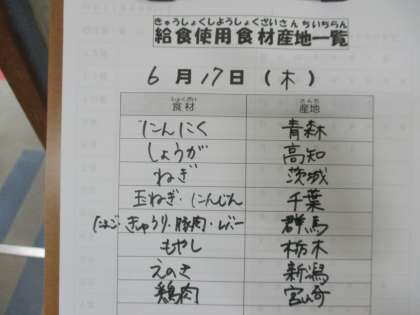 きゅうしょくしようしょくざいさんちいちらん
給食使用食材産地一覧
6月17日(木)
しょくざい さんち
食材 産地
にんにく 青森
しょうが 高知
ねぎ 茨城
玉ねぎ・にんじん 千葉
たまご・きゅうり・豚肉・レバー 群馬
もやし 栃木
えのき 新潟
鶏肉 宮崎